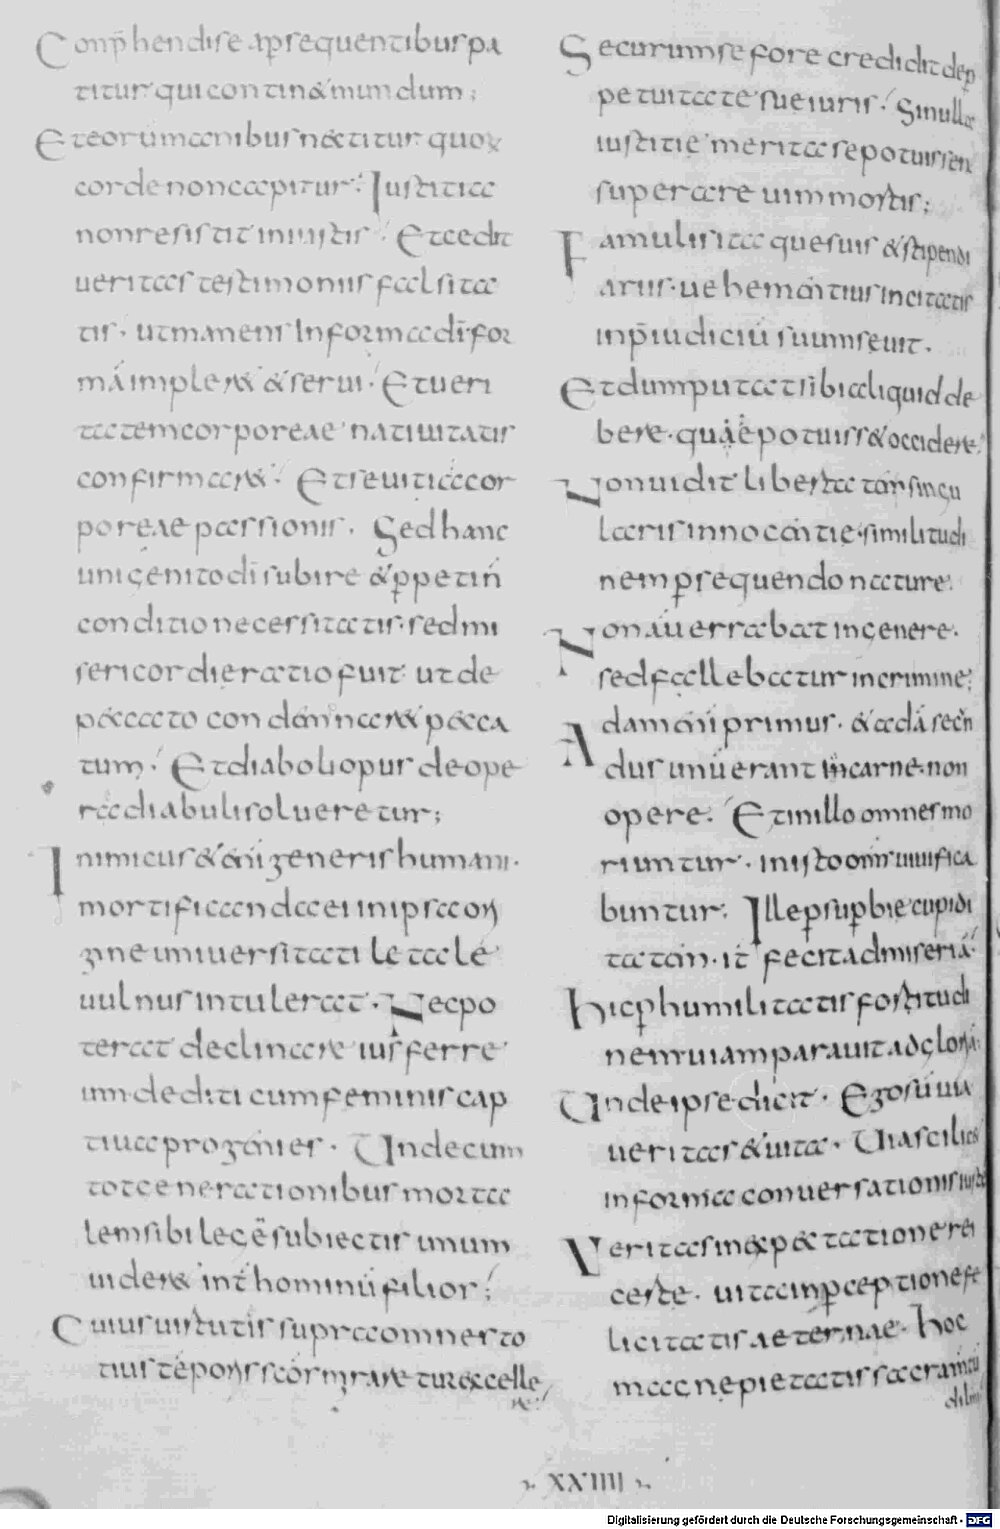 Conp̄hendise a ꝑsequentibus pa
titur qui continet mundum;
Et eorum manibus nectitur quoꝝ
corde non capitur. Iustitia
non resistit iniustis. Et cedit
ueritas testimoniis falsita
tis. ut manens In forma dī for
mā impleret & serui. Et ueri
tatem corporeae natiuitatis
confirmaret. Et seuitia cor
poreae passionis. Sed hanc
unigenito dī subire & ꝑpetin̄
conditio necessitatis. sed mi
sericordię ratio fuit ut de
peccato condamnaret pecca
tum. Et diaboli opus de ope
ra diabuli solueretur;
Inimicus &enī generis humani.
mortificanda ei in ipsa ori
gine uniuersitati letale
uulnus intulerat. Nec po
terat declinare ius ferre
in dediti cum feminis cap
tiua progenies. Unde cum
tot generationibus morta
lem sibi legē subiectis unum
uideret int̄ hominū filios;
Cuius uirtutis supra omnes to
tius tēporis scōr miraretur excelle
re.
Securum se fore credidit de ꝑ
petuitate sue iuris. Si nulla
iustitię merita se potuissen
superare uim mortis;
Famulis itaque suis & stipendi
ariis. uehementius incitatis
in p̄iudiciū suum seuit.
Et dum putat n̄ bi aliquid de
bere. quāē potuiss& occidere.
Non uidit libertatem singu
laris innocentie. similitudi
nem ꝑsequendo nature.
Non au̅ errabat in genere.
sed fallebatur in crimine.
Adam enī primus. & adā secn̄
dus unū erant in carne. non
opere. Et in illo omnes mo
riuntur. in isto om̄s uiuifica
buntur. Ille ꝑ suꝑbie cupidi
tatem. it̄ fecit ad miseriā.
Hic ꝑ humilitatis fortitudi
nem uiam parauit ad gloriā.
Unde ipse dicit. Ego sū uia
ueritas & uita. Uia scilic&
in forma conuersationis iuste
Ueritas in expectatione rei
certe. uita in ꝑceptione fe
licitatis aeternae. Hoc
magne pietatis sacramentū
dil
XXIIII
Digitalisierung gefördert durch die Deutsche Forschungsgemeinschaft - DFG